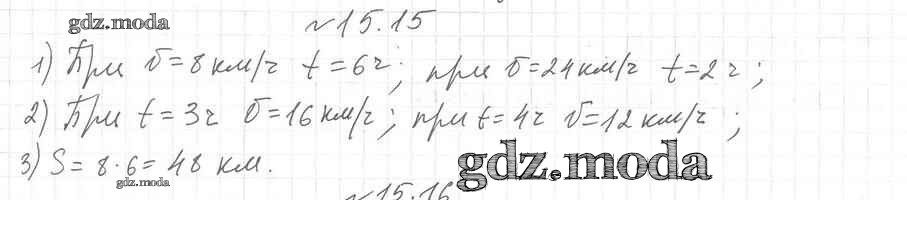 gdz.moda
№15.15
1) При v=8км/ч t=6ч; при v=24км/ч t=2ч;
2) При t=3ч v=16км/ч; при t=4ч v=12км/ч;
3) S= 8·6=48 км.
gdz.moda
gdz.moda
№15.16